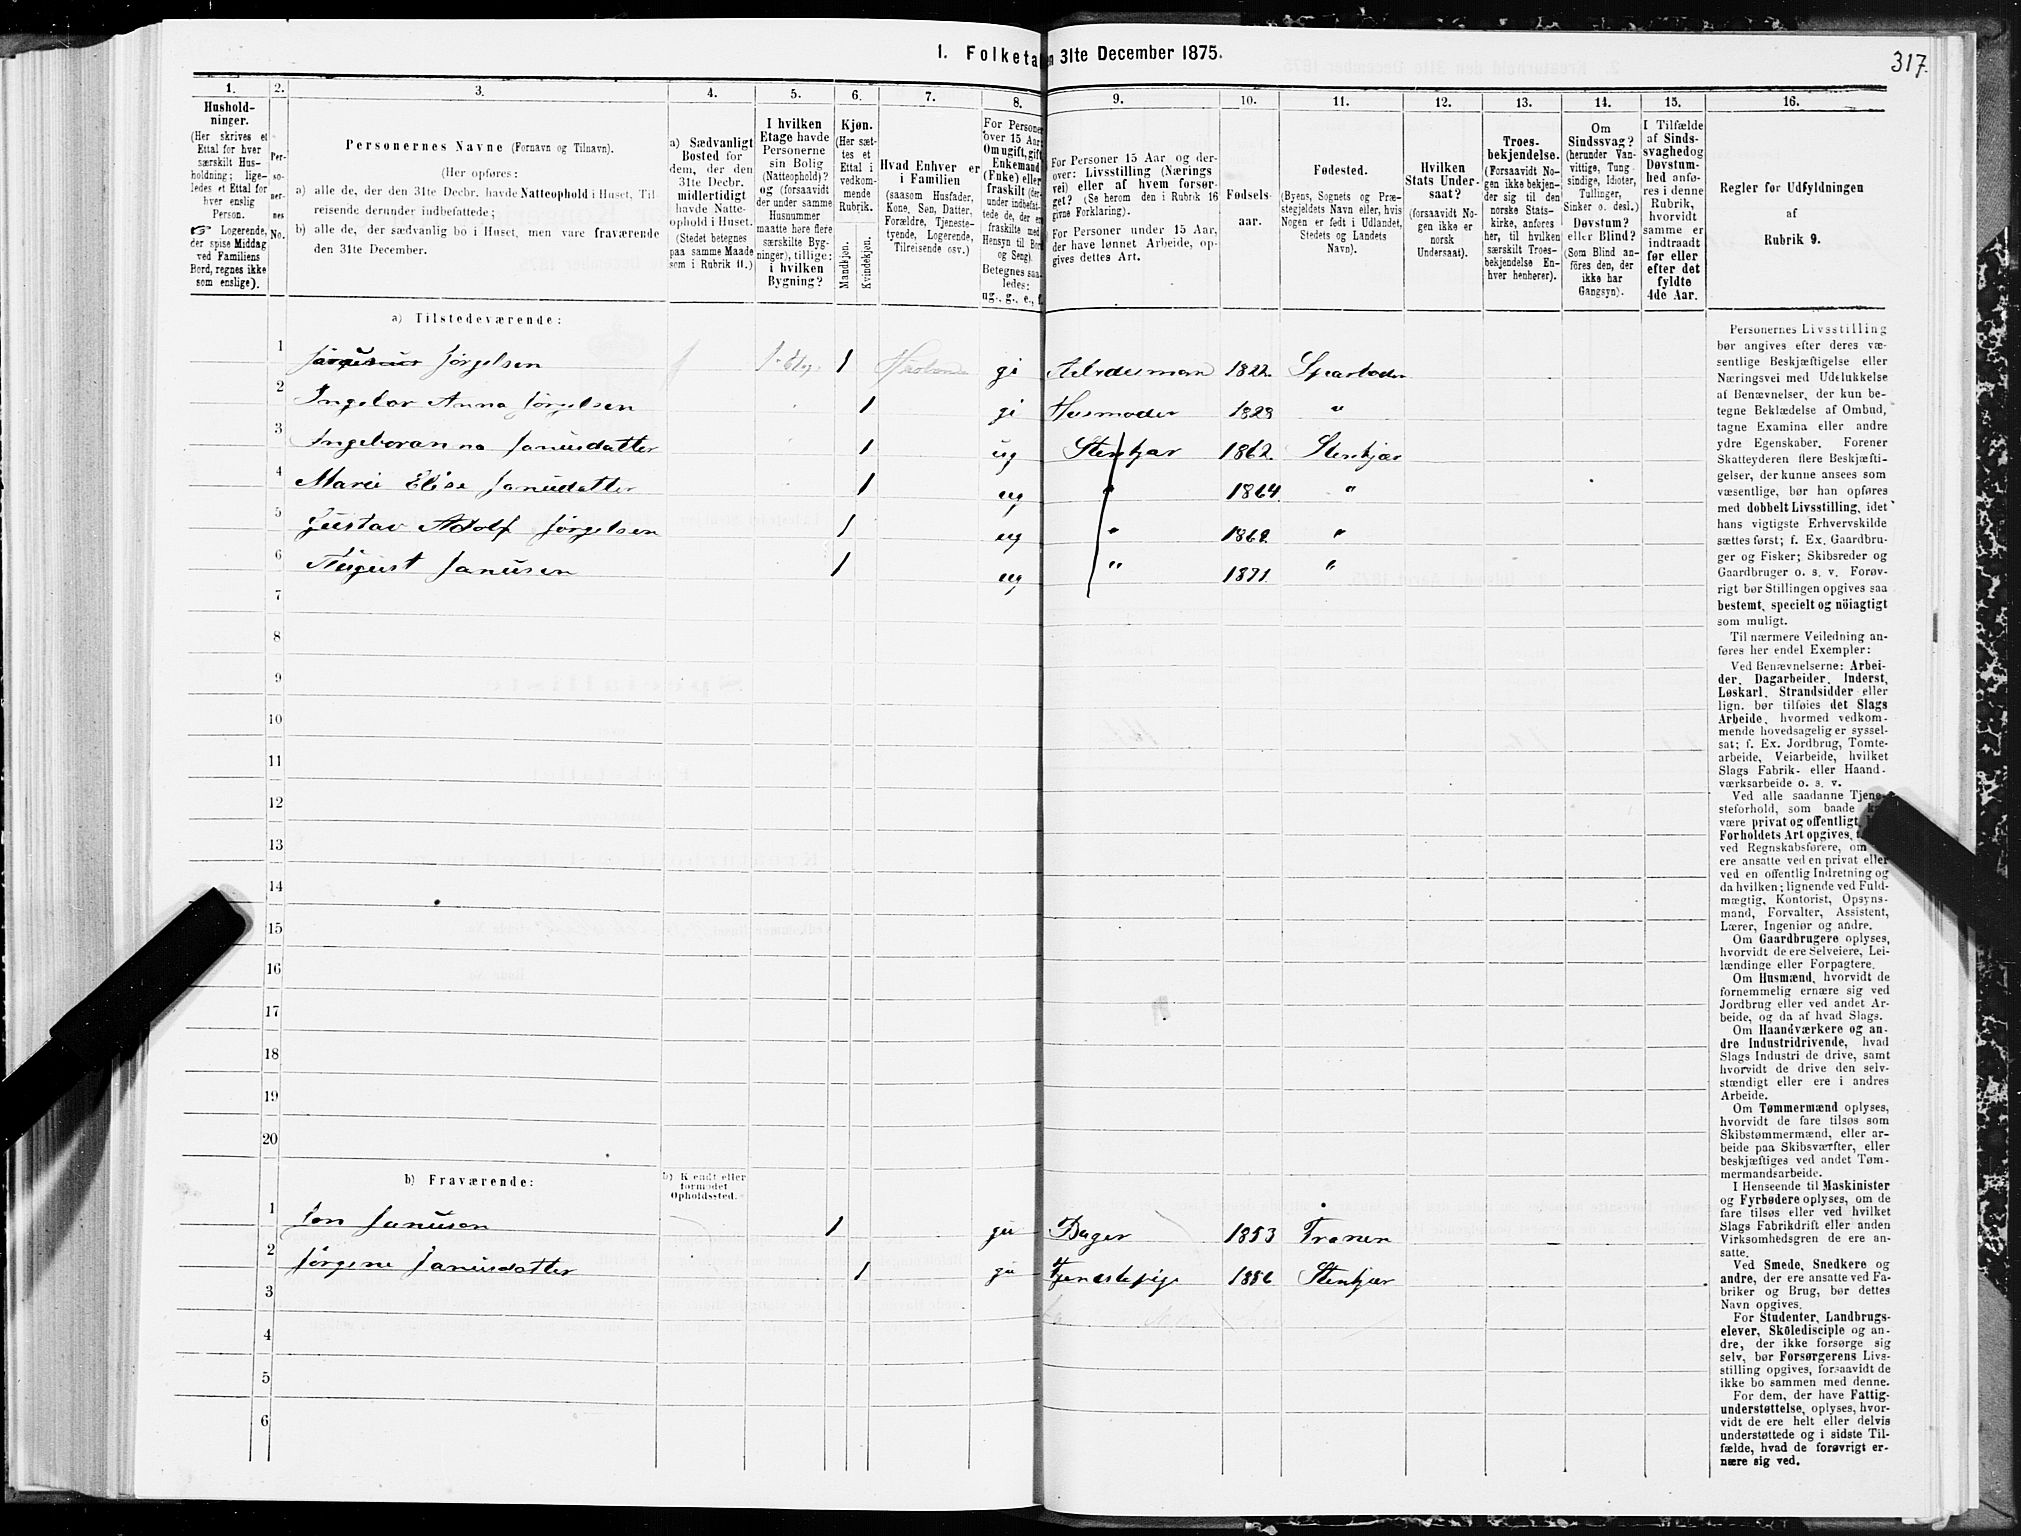 1. Folketal
en 31te December 1875.
317.
1.
Hushold-
ninger.
(Her skrives et
Ettal for hver
særskilt Hus-
holdning; lige-
ledes et Ettal for
hver enslig
Person.
☞ Logerende,
der spise Middag
ved Familiens
Bord, regnes ikke
som enslige).
2.
Per-
so-
ner-
nes
No.
3.
Personernes Navne (Fornavn og Tilnavn).
(Her opføres:
a) alle de, der den 31te Decbr. havde Natteophold i Huset, Til-
reisende derunder indbefattede;
b) alle de, der sædvanlig bo i Huset, men vare fraværende
den 31te December.
4.
a) Sædvanligt
Bosted for
dem, der den
31te Decbr.
midlertidigt
havde Natte-
ophold i Huset.
(Stedet betegnes
paa samme Maade
som i Rubrik 11.)
5.
I hvilken
Etage havde
Personerne
sin Bolig
(Natteophold)?
og (forsaavidt
der under samme
Husnummer
maatte høre flere
særskilte Byg-
ninger), tillige:
i hvilken
Bygning?
6.
Kjøn.
(Her sæt-
tes et
Ettal i
vedkom-
mende
Rubrik.
Mandkjøn.
Kvindekjøn.
7.
Hvad Enhver er
i Familien
(saasom Husfader,
Kone, Søn, Datter,
Forældre, Tjeneste-
tyende, Logerende,
Tilreisende osv.)
8.
For Persone
over 15 Aar
Om ugift, gift
Enkemand
(Enke) eller
fraskilt (der-
under indbefat-
tede de, der er
fraskilte med
Hensyn til Bor
og Seng).
Betegnes saa-
ledes:
ug., g., e., f.
9.
For Personer 15 Aar og der-
over: Livsstilling (Nærings
vei) eller af hvem forsør-
get? (Se herom den i Rubrik 16
givne Forklaring).
For Personer under 15 Aar,
der have lønnet Arbeide, op-
gives dettes Art.
10.
Fødsels-
aar.
11.
Fødested.
(Byens, Sognets og Præ-
stegjeldets Navn eller, hvis
Nogen er født i Udlandet,
Stedets og Landets
Navn).
12.
Hvilken
Stats Under-
saat?
(forsaavidt No-
gen ikke er
norsk
Undersaat).
13.
Troes-
bekjendelse.
(Forsaavidt No-
gen ikke bekjen-
der sig til den
norske Stats-
kirke, anføres
her, til hvilken
særskilt Troes-
bekjendelse En-
hver henhører).
14.
Om
Sindssvag?
(herunder Van-
vittige, Tung
sindige, Idioter,
Tullinger,
Sinker o. desl.)
Døvstum?
eller Blind?
(Som Blind an-
föres den, der
ikke har
Gangsyn).
15.
I Tilfælde
af Sinds-
svaghed og
Døvstum-
hed anfø-
res i denne
Rubrik,
hvorvidt
samme er
indtraadt
før eller
efter det
fyldte
4de Aar.
16.
Regler før Udfyldningen
af
Rubrik 9.
a) Tilstedeværende:
1 Jørgelsen 1 gi 1822. Sparboden
2 Ingebor Anna Jørgelsen 1 gi Husmoder 1828 "
3 Ingeboranna Janusdatter 1 ug Stenkjær 1862. Stenkjær
4 Marie Elise Janusdatter 1 ug " 1864 "
5 Gustav Adolf Jørgelsen 1 ug " 1869 "
6 August Janusen 1 ug " 1871. "
7
8
9
10
11
12
13
14
15
16
17
18
19
20
b) Fraværende:
b) Kendt eller
formodet
Opholdssted.
1 Jon Janusen 1 gu Bager 1853 Tranen
2 Jørgine Janusdatter 1 gu Tjenestepige 1856 Stenkjær
3
4
5
6
Personernes Livsstilling
bør angives efter deres væ-
sentlige Beskjæftigelse eller
Næringsvei med Udelukkelse
af Benævnelser, der kun be-
tegne Beklædelse af Ombud,
tagne Examina eller andre
ydre Egenskaber. Forener
Skatteyderen flere Beskjæfti-
gelser, der kunne ansees som
væsentlige, bør han opføres
med dobbelt Livsstilling, idet
hans vigtigste Erhvervskilde
sættes først; f. Ex. Gaardbru-
ger og Fisker; Skibsreder og
Gaardbruger o. s. v. Forøv-
rigt bør Stillingen opgives saa
bestemt, specielt og nöiagtigt
som muligt.
Til nærmere Veiledning an-
føres her endel Exempler:
Ved Benævnelserne: Arbei-
der, Dagarbeider, Inderst,
Løskarl, Strandsidder eller
lign. bør tilføies det Slags
Arbeide, hvormed vedkom-
mende hovedsagelig er syssel-
sat; f. Ex. Jordbrug, Tomte-
arbeide, Veiarbeide, hvilket
Slags Fabrik- eller Haand-
værksarbeide o. s. v.
Ved alle saadanne Tjene-
steforhold, som baade k
være privat og offentligt,
Forholdets Art opgives,
ved Regnskabsførere, om
ere ansatte ved en privat eller
ved en offentlig Indretning og
da hvilken; lignende ved Fuld-
mægtig, Kontorist, Opsyns-
mand, Forvalter, Assistent,
Lærer, Ingeniør og andre.
Om Gaardbrugere oplyses,
hvorvidt de ere Selveiere, Lei-
lændinge eller Forpagtere.
Om Husmænd, hvorvidt de
fornemmelig ernære sig ved
Jordbrug eller ved andet Ar-
beide, og da af hvad Slags.
Om Haandværkere og an-
dre Industridrivende, hvad
Slags Industri de drive, samt
hvorvidt de drive den selv-
stændigt eller ere i andres
Arbeide.
Om Tømmermænd oplyses,
hvorvidt de fare tilsøs som
Skibstømmermænd, eller ar-
beide paa Skibsværfter, eller
beskjæftiges ved andet Tøm-
mermandsarbeide.
I Henseende til Maskinister
og Fyrbødere oplyses, om de
fare tilsøs eller ved hvilket
Slags Fabrikdrift eller anden
Virksomhedsgren de ere an-
satte.
Ved Smede, Snedkere og
andre, der ere ansatte ved Fa-
briker og Brug, bør dettes
Navn opgives.
For Studenter, Landbrugs-
elever, Skôledisciple og an-
dre, der ikke forsørge sig
selv, bør Forsørgerens Livs-
stilling opgives, forsaavidt de
ikke bo sammen med denne.
For dem, der have Fattig-
understøttelse, oplyses, hvor-
vidt de ere helt eller delvis
understøttede og i sidste Til-
fælde, hvad de forøvrigt er-
nære sig ved.